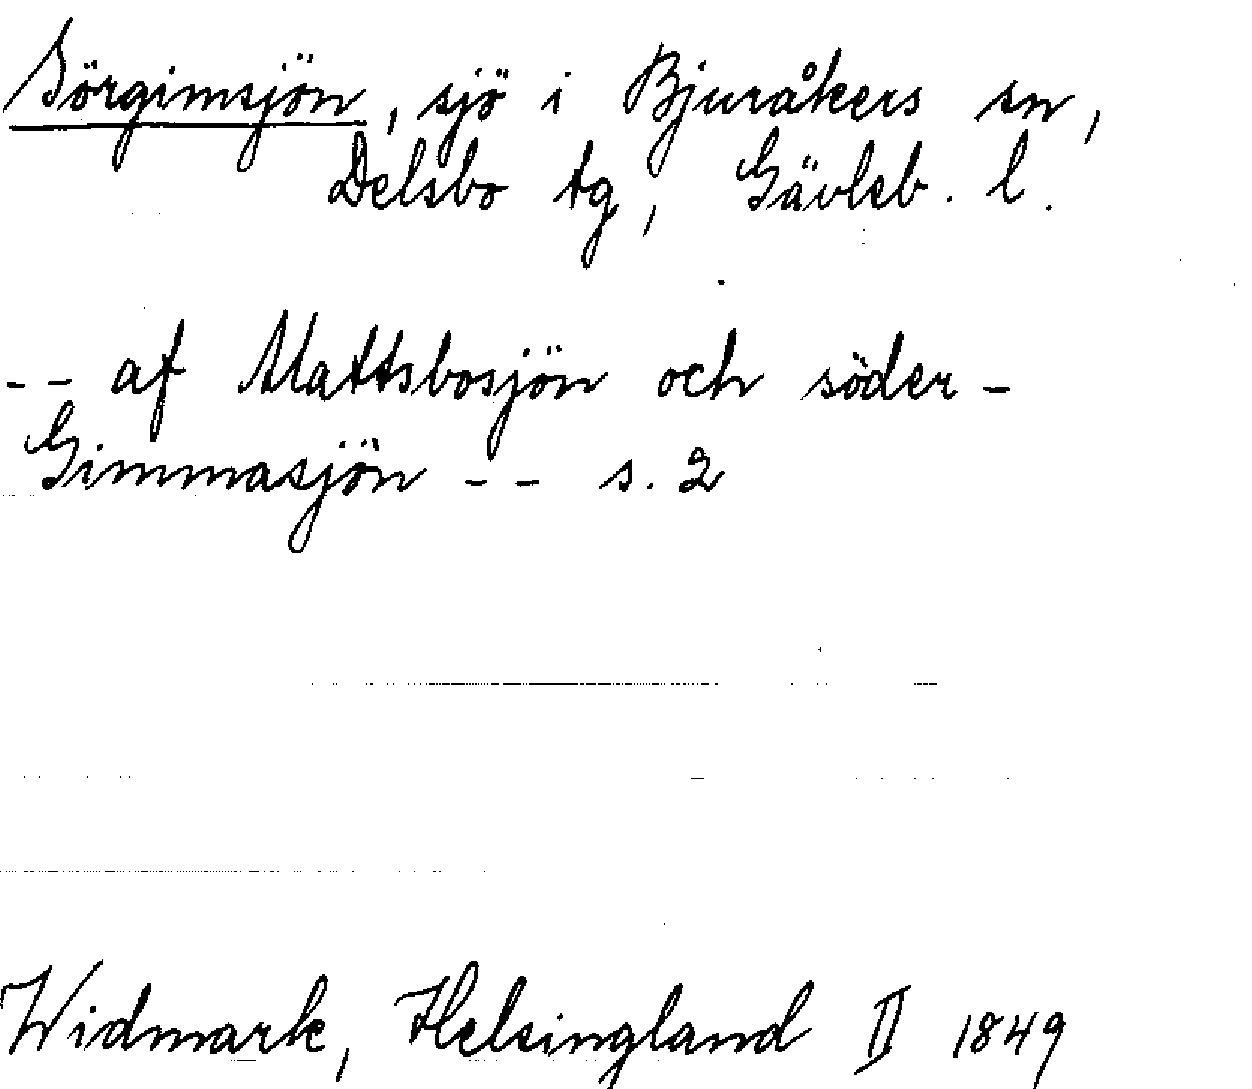 Sörgimsjön, sjö i Bjuråkers sn,
Delsbo tg, Gävleb. l.
-- af Mattsbosjön och söder-
Gimmasjön -- s. 2
Widmark, Helsingland II 1849